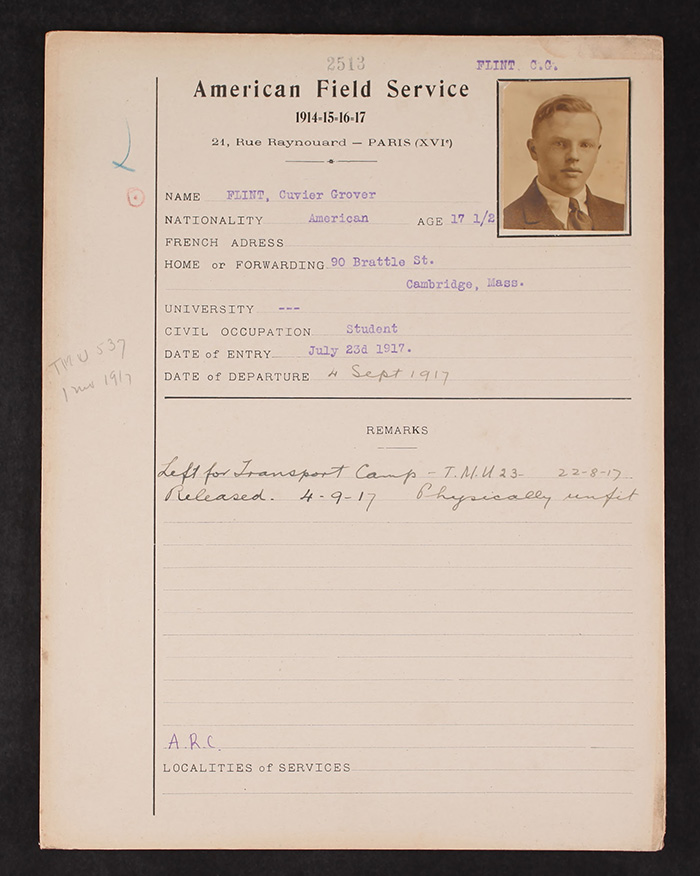 2513
FLINT, C.G.
American Field Service
1914-15-16-17
21, Rue Raynouard — PARIS (XVIe)
NAME FLINT, Cuvier Grover
NATIONALITY American AGE 17 1/2
FRENCH ADRESS
HOME or FORWARDING 90 Brattle St.
Cambridge, Mass.
UNIVERSITY ---
CIVIL OCCUPATION Student
DATE of ENTRY July 23d 1917.
DATE of DEPARTURE 4 Sept 1917
TMU 537
1917
REMARKS
Left for Transport Camp - T.M.U 23- 22-8-17
Released. 4-9-17 Physically unfit
A.R.C.
LOCALITIES of SERVICES